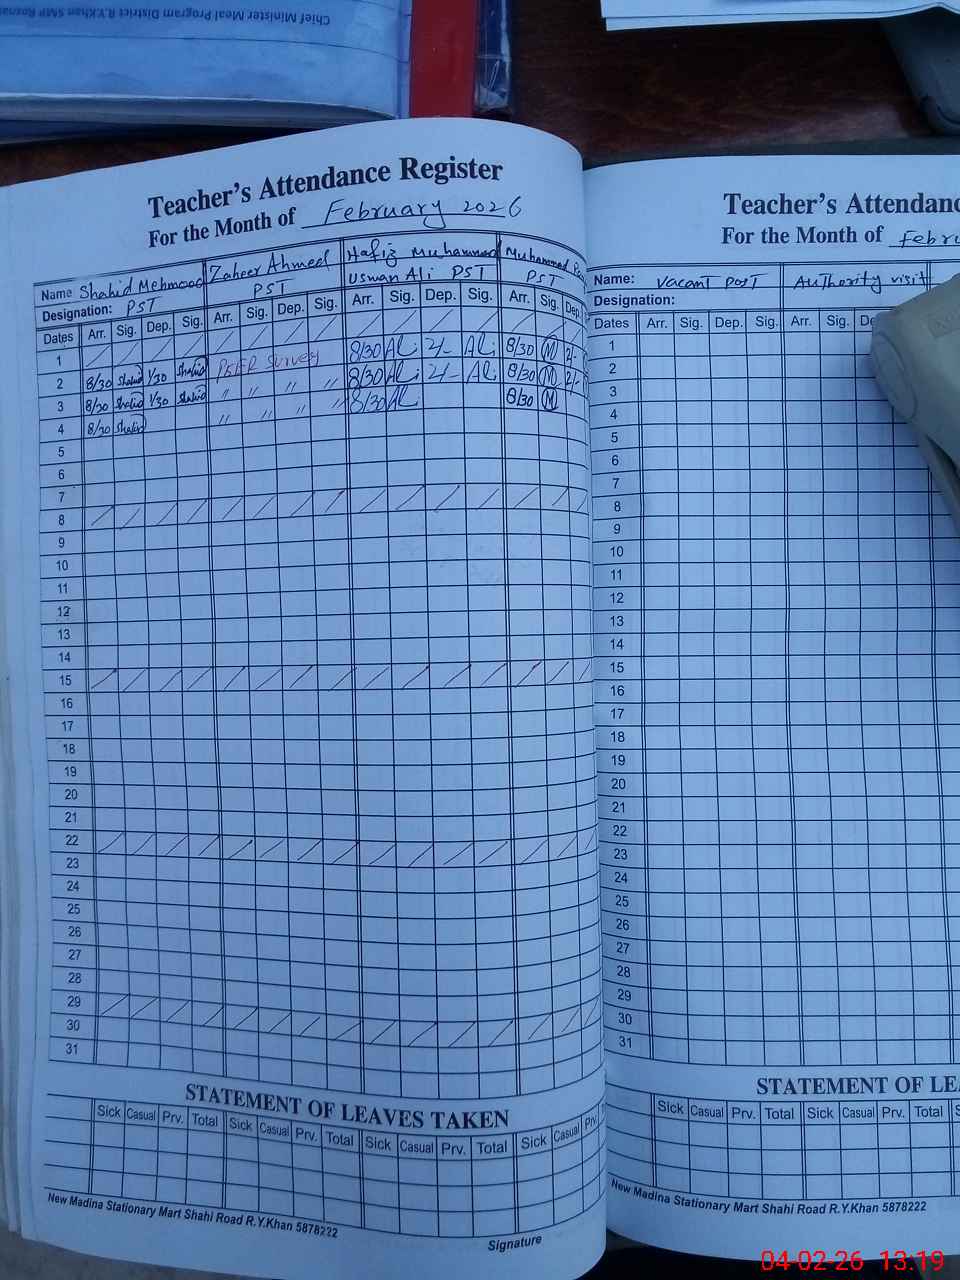 Chief Minister Meal Program District R.Y.Khan SMP
Teacher's Attendance Register
For the Month of February 2026
Name Shahid Mehmood Zaheer Ahmed Hafiz Muhammad Usman Ali PST Muhammad
Designation: PST PST PST
Dates Arr. Sig. Dep. Sig. Arr. Sig. Dep. Sig. Arr. Sig. Dep. Sig. Arr. Sig. Dep.
1
2 8/30 Shahid 1/30 Shahid PSER Survey 8/30 Ali 2/- Ali 8/30 M 2/-
3 8/30 Shahid 1/30 Shahid " " " " 8/30 Ali 2/- Ali 8/30 M 2/-
4 8/30 Shahid " " " " 8/30 Ali 8/30 M
5
6
7
8
9
10
11
12
13
14
15
16
17
18
19
20
21
22
23
24
25
26
27
28
29
30
31
STATEMENT OF LEAVES TAKEN
Sick Casual Prv. Total Sick Casual Prv. Total Sick Casual Prv. Total Sick Casual Prv.
New Madina Stationary Mart Shahi Road R.Y.Khan 5878222
Signature
Teacher's
For the Month of
Name: Vacant Post Authority visit
Designation:
Dates Arr. Sig. Dep. Sig. Arr. Sig.
1
2
3
4
5
6
7
8
9
10
11
12
13
14
15
16
17
18
19
20
21
22
23
24
25
26
27
28
29
30
31
STATEMENT OF
Sick Casual Prv. Total Sick Casual Prv. Total
New Madina Stationary Mart Shahi Road R.Y.Khan 5878222
04-02-26 13:19